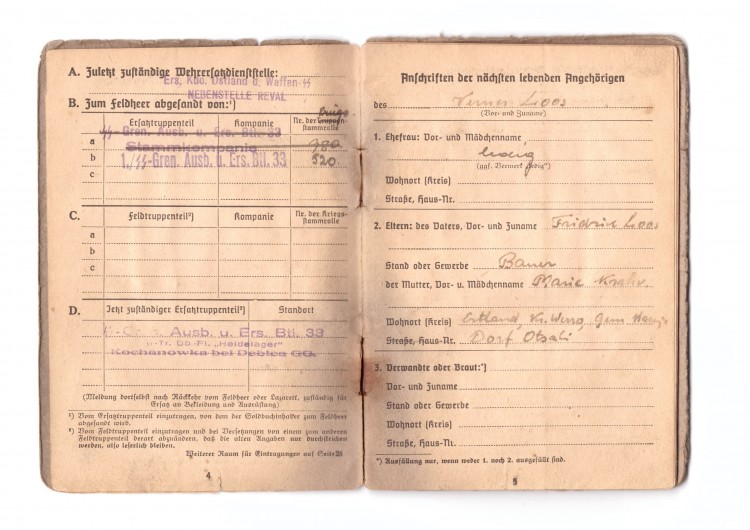 A. Zuletzt zuständige Wehrersatzdienststelle:
Ers. Kdo. Ostland d. Waffen-SS
NEBENSTELLE REVAL
B. Zum Feldheer abgesandt von:¹)
Ersatztruppenteil
Kompanie
Nr. der
Kriegs
stammrolle
a SS-Gren. Ausb. u. Ers. Btl. 33
Stammkompanie
b 1./SS-Gren. Ausb. u. Ers. Btl. 33 520
c
C. Feldtruppenteil²)
Kompanie
Nr. der Kriegs-
stammrolle
a
b
c
D. Jetzt zuständiger Ersatztruppenteil²)
Standort
Ausb. u. Ers. Btl. 33
Tr. Üb.-Pl. „Heidelager"
Kochanowka bei Debica GG.
(Meldung dortselbst nach Rückkehr vom Feldheer oder Lazarett, zuständig für
Ersatz an Bekleidung und Ausrüstung)
¹) Vom Ersatztruppenteil einzutragen, von dem der Soldbuchinhaber zum Feldheer
abgesandt wird.
²) Vom Feldtruppenteil einzutragen und bei Versetzungen von einem zum anderen
Feldtruppenteil derart abzuändern, daß die alten Angaben nur durchstrichen
werden, also leserlich bleiben.
Weiterer Raum für Eintragungen auf Seite
4
Anschriften der nächsten lebenden Angehörigen
des Werner Loos
(Vor- und Zuname)
1. Ehefrau: Vor- und Mädchenname
ledig
(ggf. Vermerk „ledig")
Wohnort (Kreis)
Straße, Haus-Nr.
2. Eltern: des Vaters, Vor- und Zuname Loos
Stand oder Gewerbe Bauer
der Mutter, Vor- u. Mädchenname Marie
Wohnort (Kreis) Estland, Kr. Werro, Gem.
Straße, Haus-Nr. Dorf
3. Verwandte oder Braut:*)
Vor- und Zuname
Stand oder Gewerbe
Wohnort (Kreis)
Straße, Haus-Nr.
*) Ausfüllung nur, wenn weder 1. noch 2. ausgefüllt sind.
5